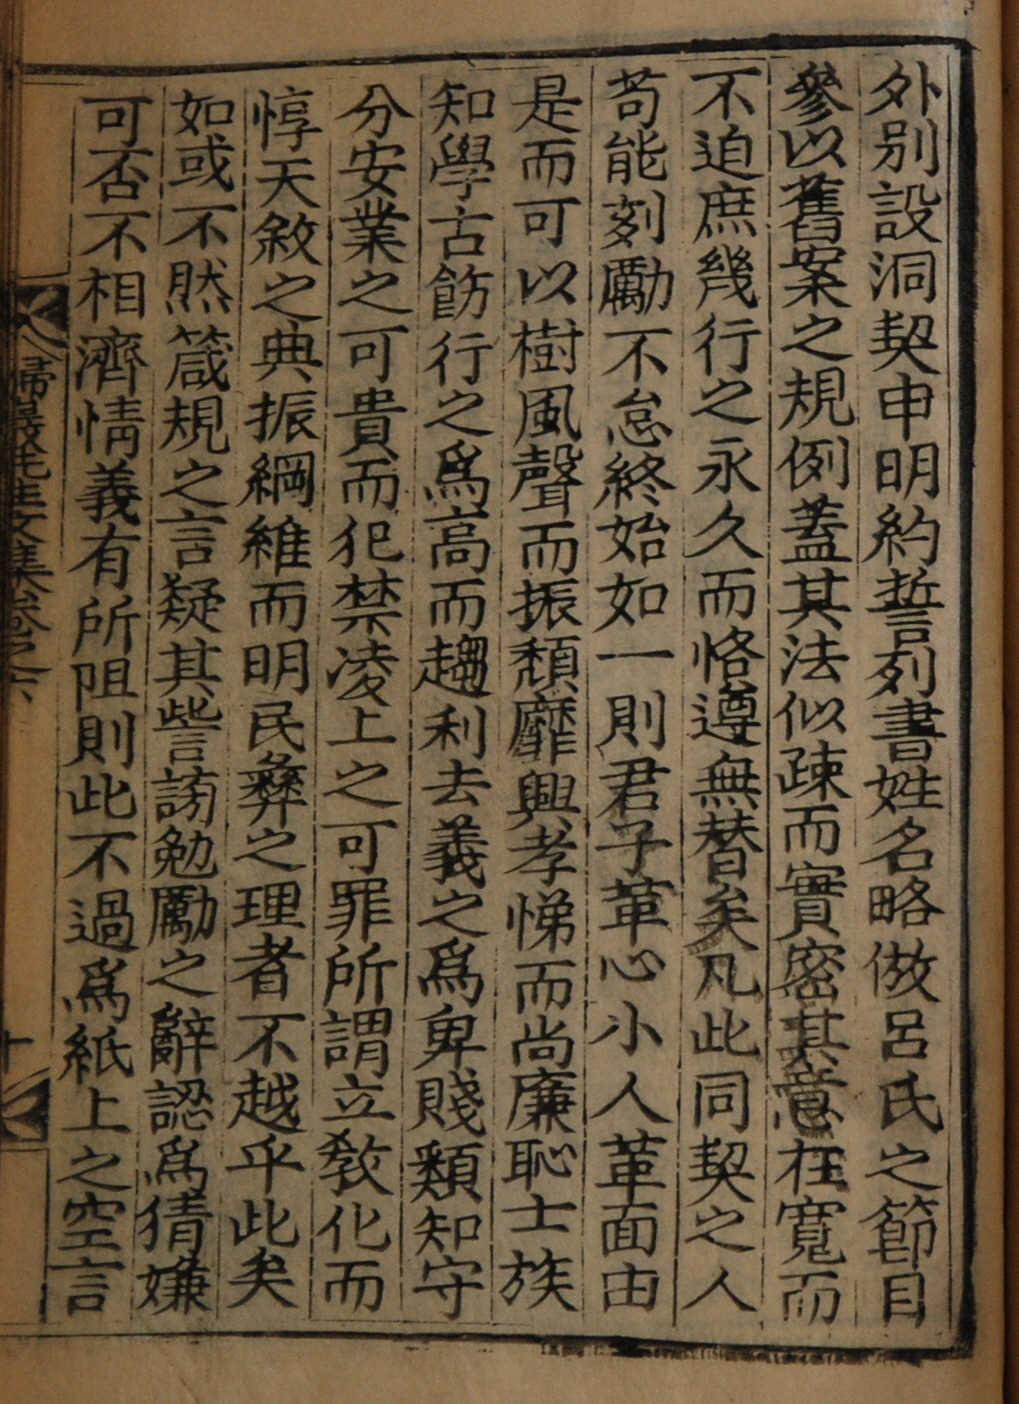 外别設洞契申明約誓列書姓名略倣呂氏之節目
參以舊案之規例蓋其法似疎而實密其意在寬而
不迫庶幾行之永久而恪遵無替矣凡此同契之人
苟能刻勵不怠終始如一則君子革心小人革面由
是而可以樹風聲而振頹靡興孝悌而尚廉恥士族
知學古飭行之爲高而趨利去義之爲卑賤類知守
分安業之可貴而犯禁凌上之可罪所謂立敎化而
惇天敘之典振綱維而明民彝之理者不越乎此矣
如或不然箴規之言疑其訾謗勉勵之辭認爲猜嫌
可否不相濟情義有所阻則此不過爲紙上之空言
先生文集卷之六
十